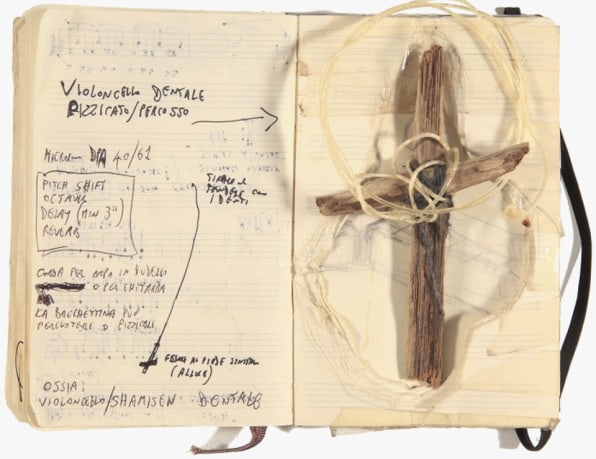 VIOLONCELLO DENTALE
PIZZICATO/PERCOSSO
DPA 40/61
PITCH SHIFT
OCTAVER
DELAY (MIN 3")
REVERB
TIRARE E
TENDERE CON
I DENTI
CORDA PER ARPA IN BUDELLO
O PER CHITARRA
LA BACCHETTINA PUÒ
PERCUOTERE O PIZZICARE
AL PIEDE
(ALLUCE)
OSSIA:
VIOLONCELLO/SHAMISEN DENTALE